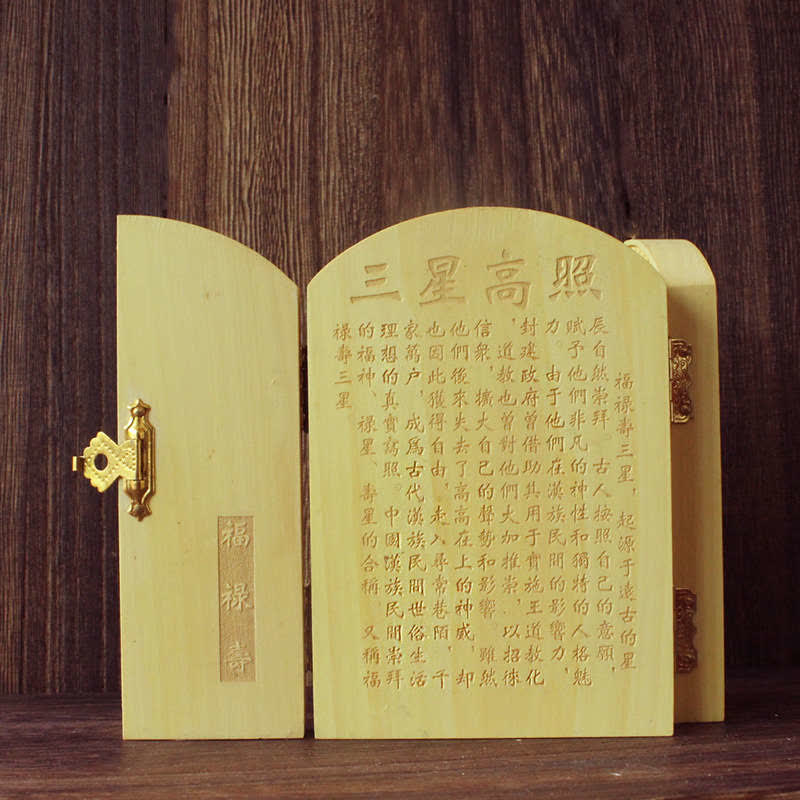 三星高照
福祿壽三星，起源于遠古的星
辰自然崇拜。古人按照自己的意願，
賦予他們非凡的神性和獨特的人格魅
力。由于他們在漢族民間的影響力，
封建政府曾借助其用于實施王道教化
，道教也曾對他們大加推崇，以招徠
信衆，擴大自己的聲勢和影響。雖然
他們後來失去了高高在上的神威，却
也因此獲得自由，走入尋常巷陌，千
家萬户，成爲古代漢族民間世俗生活
理想的真實寫照。中國漢族民間崇拜
的福神、祿星、壽星的合稱，又稱福
祿壽三星
福祿壽